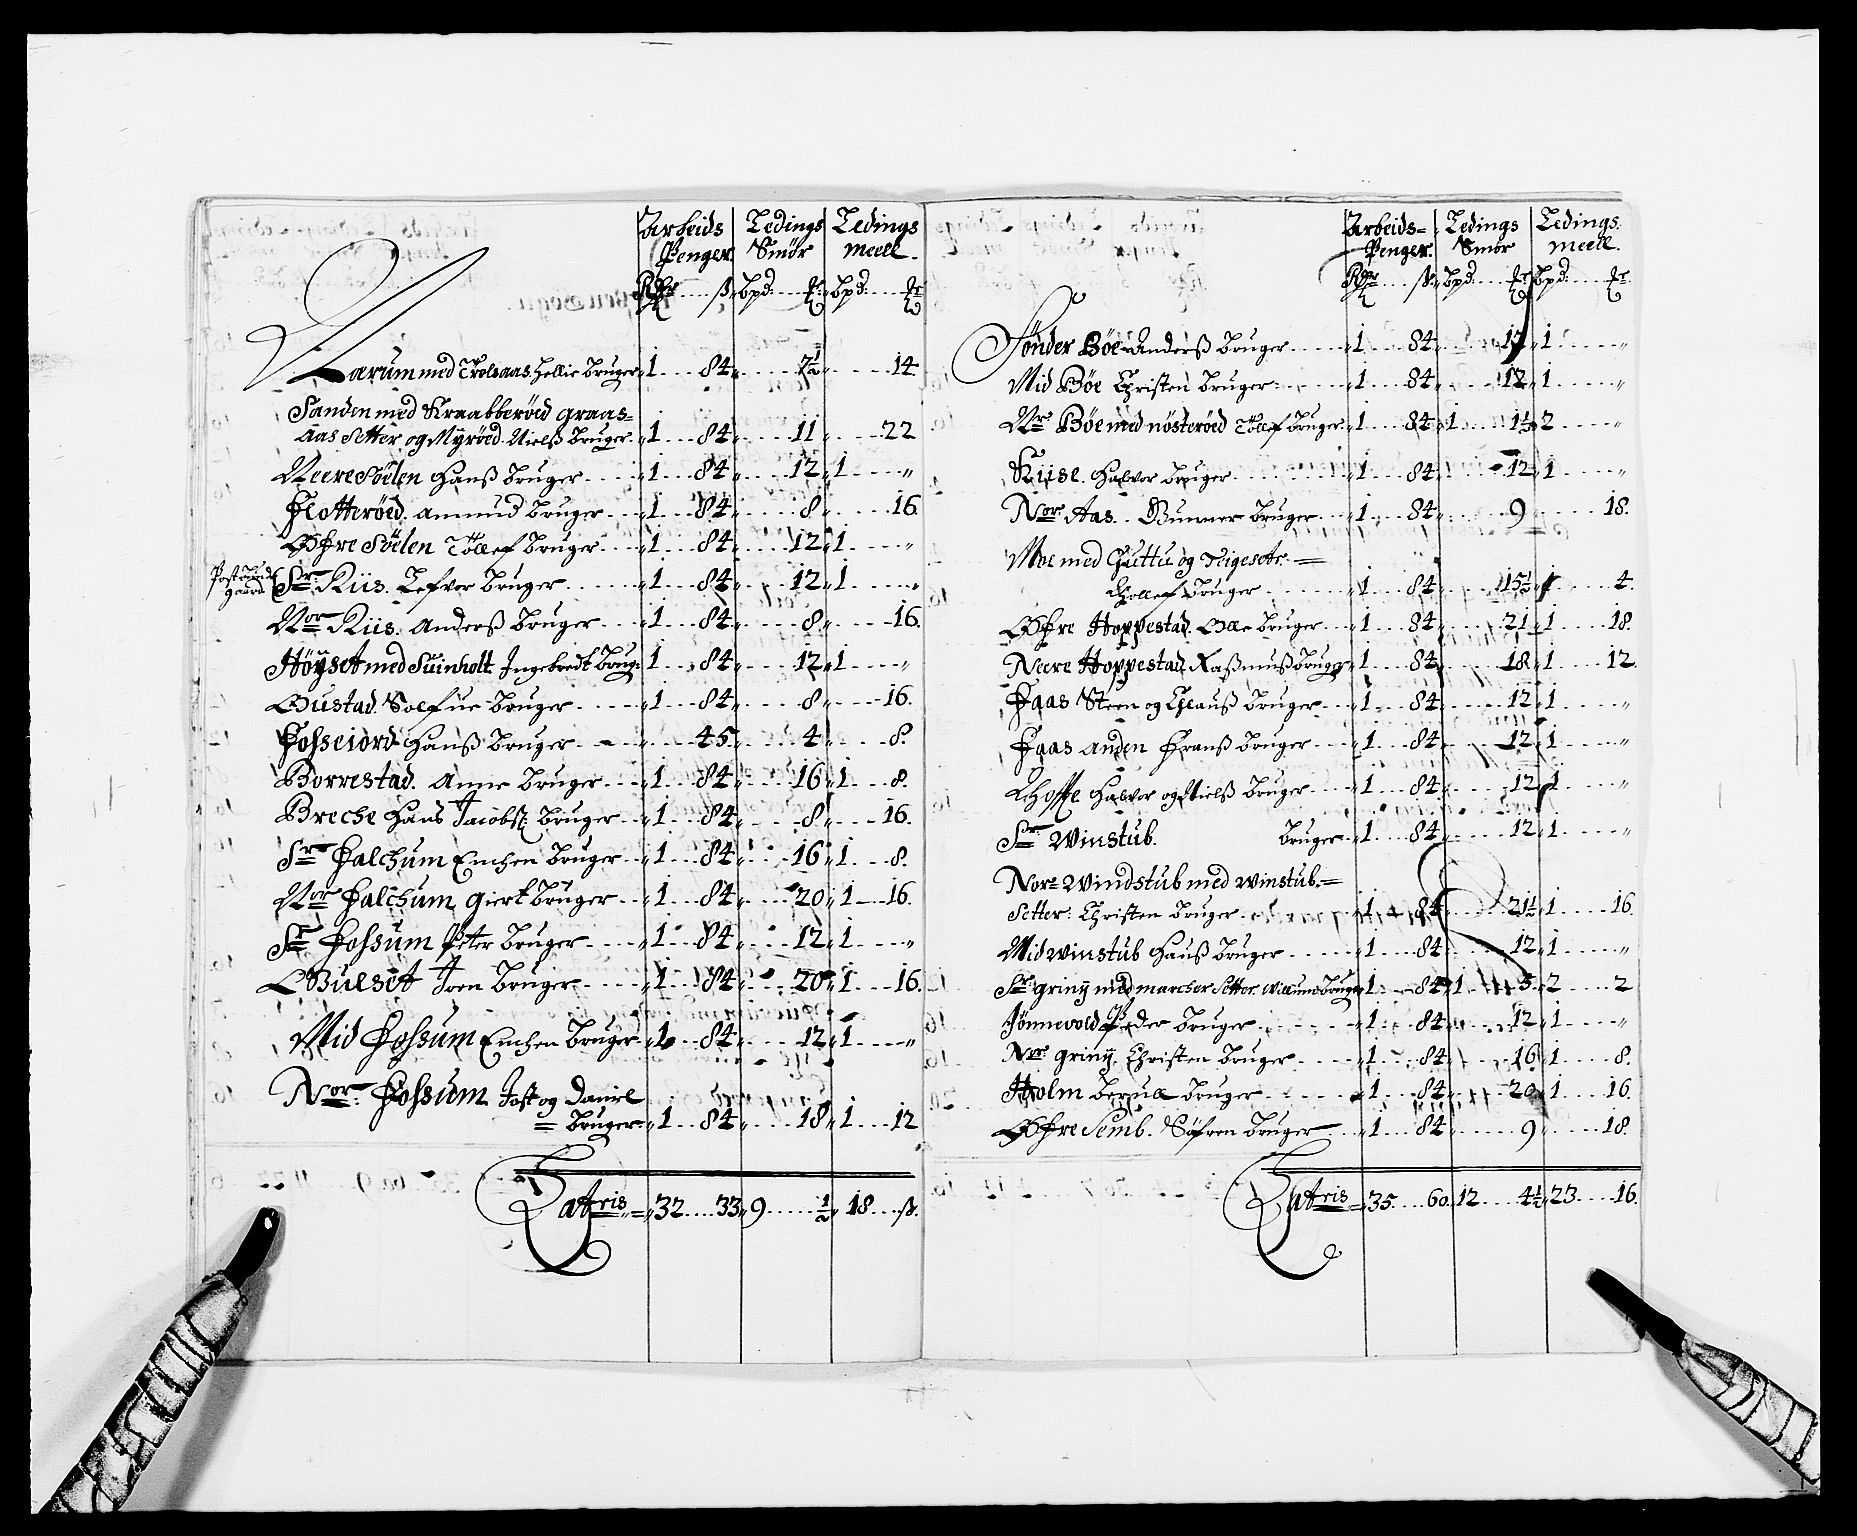 Arbeids Penger. Ledings Smör Ledings meell.
Rdr ß. bpd: bpd:
Larum med Trolsaas Hellie bruger 1 84 7½ 14
Sanden med Kraabberöed graas=
aas Setter og Myröed. Nielß bruger. 1 84 11 22
Neere Söelen Hanß bruger 1 84 12 1 "
Flotteröed. Ammud bruger 1 84 8 16.
Öfre Söelen Töllef bruger 1 84 12 1 "
Post
gaard
Sr: Riis. Lefvor bruger 1 84 12 1 "
Nor Riis. Anderß bruger 1 84 8 16.
Höÿset med Suinholt Ingebredt brug: 1 84 12 1 "
Gustad. Solfue bruger 1 84 8 16.
Fosseiord Hanß bruger 45 4 8.
Borrestad. Anne bruger 1 84 16 1 8.
Breche Hans Jacobß: bruger 1 84 8 16.
Sr Falchum Emchen bruger 1 84 16 1 8.
Nor Falchum Giert bruger 1 84 20 1 16.
Sr Fossum Peter bruger 1 84 12 1 "
Gulset Joen bruger 1 84 20 1 16.
Mid Fossum Emchen bruger 1 84 12 1 "
Nor: Fossum Jost og Daniel
= bruger 1 84 18 1 12
Latris = 32 33 9 ½ 18 ß.
Arbeids= Penger. Ledings Smör Ledings meell.
Rdr ß. bpd: bpd:
Sönder Böe Anderß bruger 1 84 17 1 "
Mid Böe Christen bruger 1 84 12 1 "
Nr Böe med nösteröed Töllef bruger 1 84 1 1½ 2 "
Kiise. Halvor bruger 1 84 12 1 "
Nor Aas. Gunner bruger 1 84 9 18.
Moe med Huttu og Teigesetr. =
Thollef bruger 1 84 15½ 1 4.
Öfre Hoppestad Olle bruger 1 84 21 1 18.
Neere Hoppestad Raßmuß bruger 1 84 18 1 12.
Faas Steen og Clauß bruger 1 84 12 1 "
Faas anden Franß bruger 1 84 12 1 "
Hoffe Halvor og Nielß bruger 1 84 12 1 "
Sr: Winstub. bruger 1 84 12 1 "
Nor: Windstub med winstub. =
Setter: Christen bruger 1 84 21½ 1 16.
Mid winstub Hanß bruger 1 84 12 1 "
Sr: griny med marcher Setter. Willum bruger 1 84 1 5 2 2
Jönnevold Peder bruger 1 84 12 1 "
Nor griny. Christen bruger 1 84 16 1 8.
Holm bruger 1 84 20 1 16.
Öfre Semb. Söfren bruger 1 84 9 18.
Latris = 35. 60. 12 4½ 23 16.